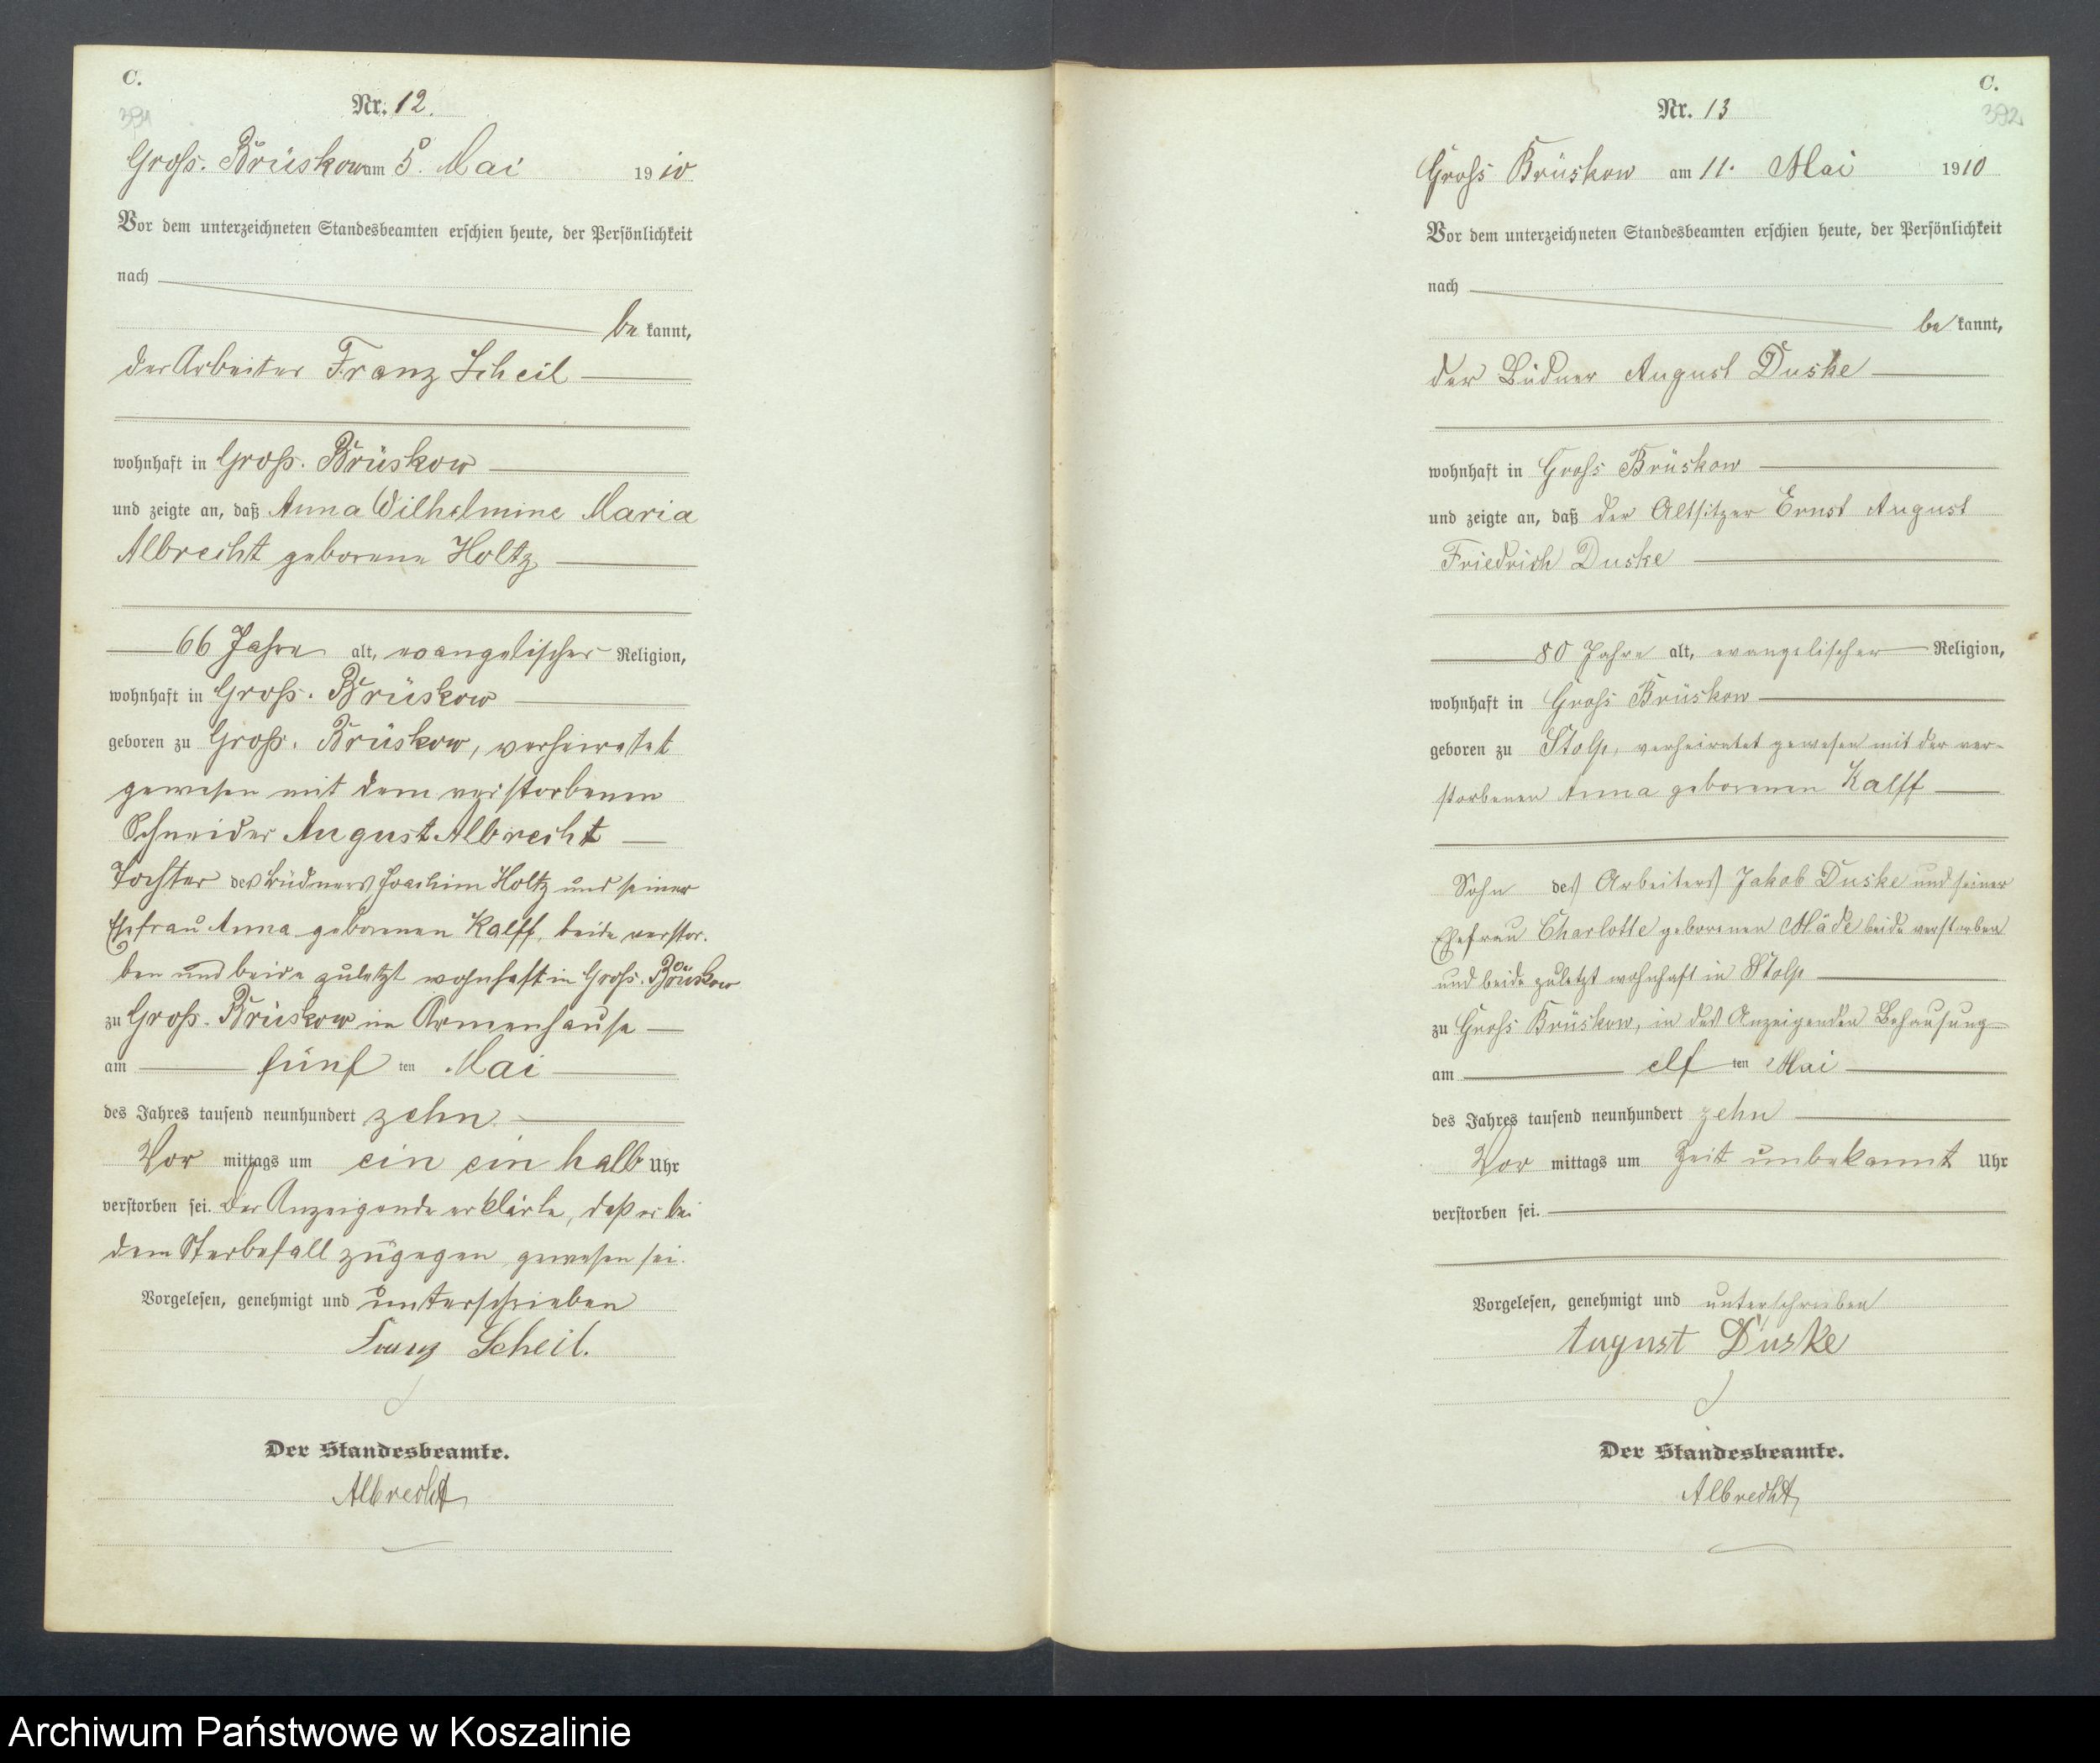 C.
391
Nr. 12.
Groß. Brüskow am 5. Mai 1910
Vor dem unterzeichneten Standesbeamten erschien heute, der Persönlichkeit
nach
be kannt,
der Arbeiter Franz Scheil
wohnhaft in Groß. Brüskow
und zeigte an, daß Anna Wilhelmine Maria
Albrecht geborene Holtz
66 Jahre alt, evangelischer Religion,
wohnhaft in Groß. Brüskow
geboren zu Groß. Brüskow, verheiratet
gewesen mit dem verstorbenen
Schneider August Albrecht
Tochter des Büdners Joachim Holtz und seiner
Ehefrau Anna geborenen Kalff, beide verstor-
ben und beide zuletzt wohnhaft in Groß. Brüskow
zu Groß. Brüskow im Armenhause
am fünf ten Mai
des Jahres tausend neunhundert zehn
Vor mittags um ein ein halb Uhr
verstorben sei. Der Anzeigende erklärte, daß er bei
dem Sterbefall zugegen gewesen sei.
Vorgelesen, genehmigt und unterschrieben
Franz Scheil.
Der Standesbeamte.
Albrecht
C.
392
Nr. 13
Groß Brüskow am 11. Mai 1910
Vor dem unterzeichneten Standesbeamten erschien heute, der Persönlichkeit
nach
be kannt,
der Büdner August Duske
wohnhaft in Groß Brüskow
und zeigte an, daß der Altsitzer Ernst August
Friedrich Duske
80 Jahre alt, evangelischer Religion,
wohnhaft in Groß Brüskow
geboren zu Stolp, verheiratet gewesen mit der ver-
storbenen Anna geborenen Kalff
Sohn des Arbeiters Jakob Duske und seiner
Ehefrau Charlotte geborenen Mäde beide verstorben
und beide zuletzt wohnhaft in Stolp
zu Groß Brüskow, in des Anzeigenden Behausung
am elf ten Mai
des Jahres tausend neunhundert zehn
Vor mittags um Zeit unbekannt Uhr
verstorben sei.
Vorgelesen, genehmigt und unterschrieben
August Duske
Der Standesbeamte.
Albrecht
Archiwum Państwowe w Koszalinie